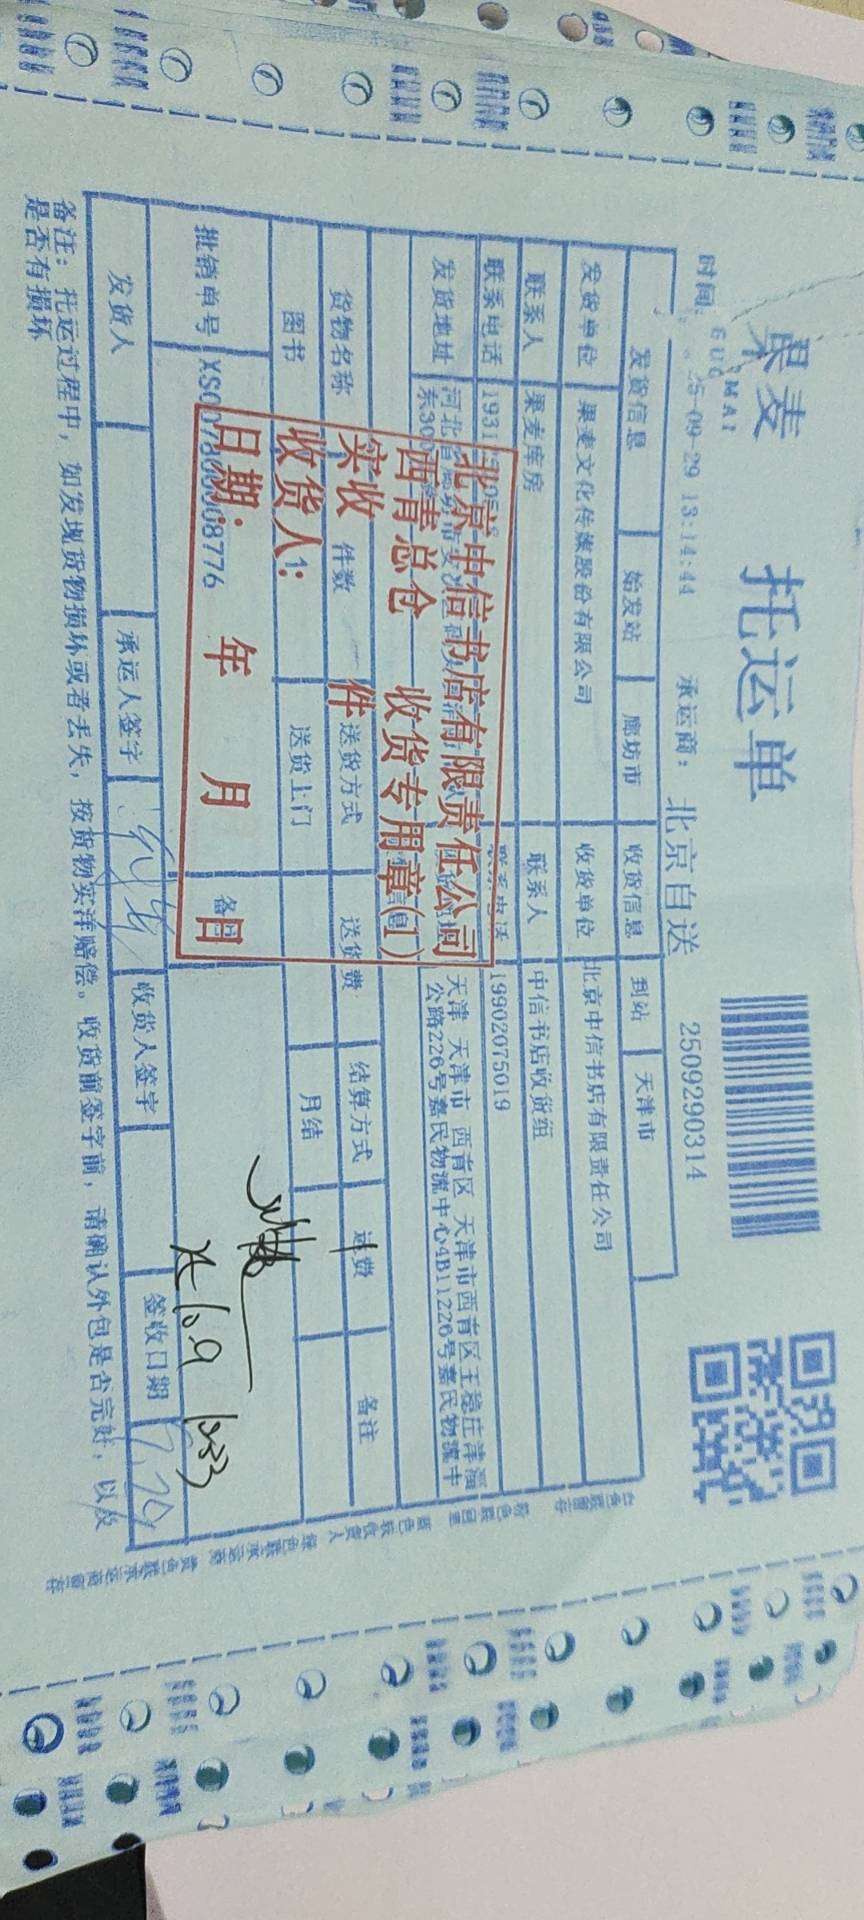 果麦
GUOMAI
托运单
2509290314
时间: 25-09-29 13:14:44 承运商: 北京自送
发货信息 始发站 廊坊市 收货信息 到站 天津市
发货单位 果麦文化传媒股份有限公司 收货单位 北京中信书店有限责任公司
联系人 果麦库房 联系人 中信书店收货组
联系电话 联系电话 19902075019
发货地址 河北省廊坊市安次区
天津 天津市 西青区 天津市西青区王稳庄津淄
公路226号嘉民物流中心4B11226号嘉民物流中
货物名称 件数 送货方式 送货费 结算方式 运费 备注
图书 送货上门 月结
批销单号 备注
发货人 承运人签字 收货人签字 签收日期
备注: 托运过程中, 如发现货物损坏或者丢失, 按货物实洋赔偿。收货前签字前, 请确认外包是否完好, 以及
是否有损坏
北京中信书店有限责任公司
西青总仓 收货专用章(1)
实收 件
收货人:
日期: 年 月 日
10.9